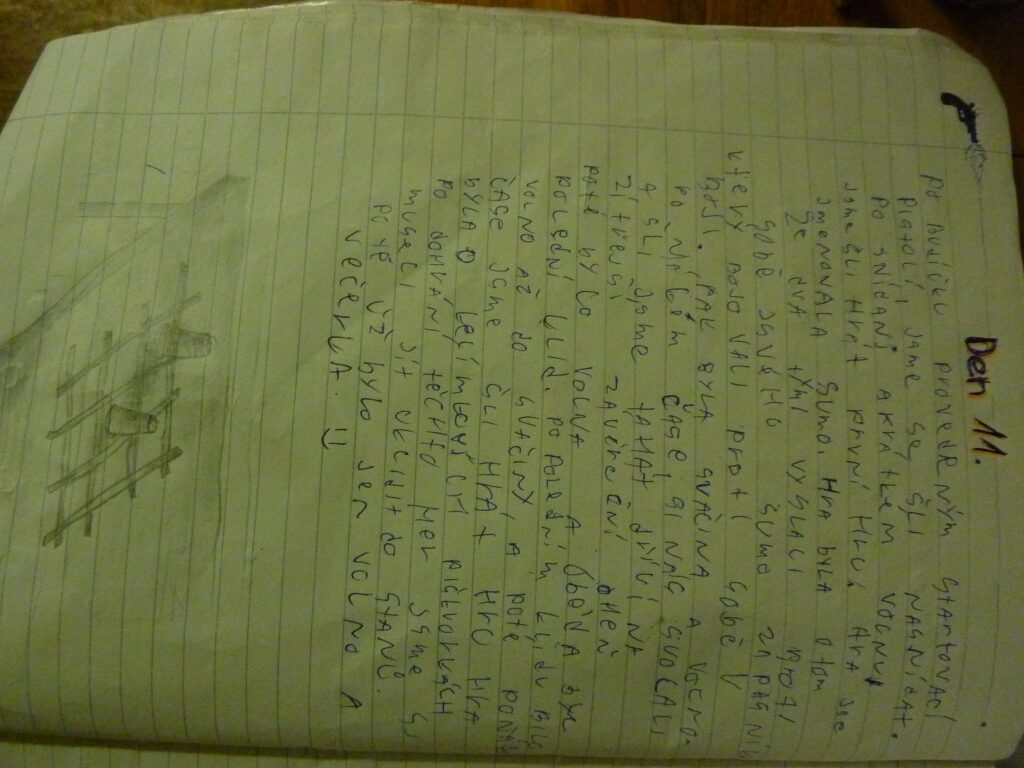 Den 11.
PO BUDÍČKU PROVEDENÝM STARTOVACÍ
PISTOLÍ JSME SE ŠLI NASNÍDAT.
PO SNÍDANI A KRÁTKÉM VOLNU
JSME ŠLI HRÁT PRVNÍ HRU. HRA SE
JMENOVALA SUMO. HRA BYLA O TOM
ŽE DVA TÝMI VYSLALI PROTI
SOBĚ SVÉHO SUMO ZÁPASNÍK
KTERÝ BOJOVALI PROTI SOBĚ V
BOJI. PAK BYLA SVAČINA A VOLNO.
PO ČASE SI NÁS SVOLALI
A ŠLI JSME TAHAT DŘÍVÍ NA
ZÍTŘEJŠÍ ZÁVĚREČNÍ OHEŇ
POTÉ BYLO VOLNA A OBĚDA BYL
POLEDNÍ KLID. PO POLEDNÍM KLIDU BYLO
VOLNO AŽ DO SVAČINY, A POTÉ
ČASE JSME ŠLI HRÁT HRU HRA
BYLA O PIŠKVORKÁCH
PO DOHRÁNÍ TĚCHTO HER JSME SI
MUSELI JÍT UKLIDIT DO STANŮ.
POTÉ UŽ BYLO JEN VOLNO A
VEČERKA. :)